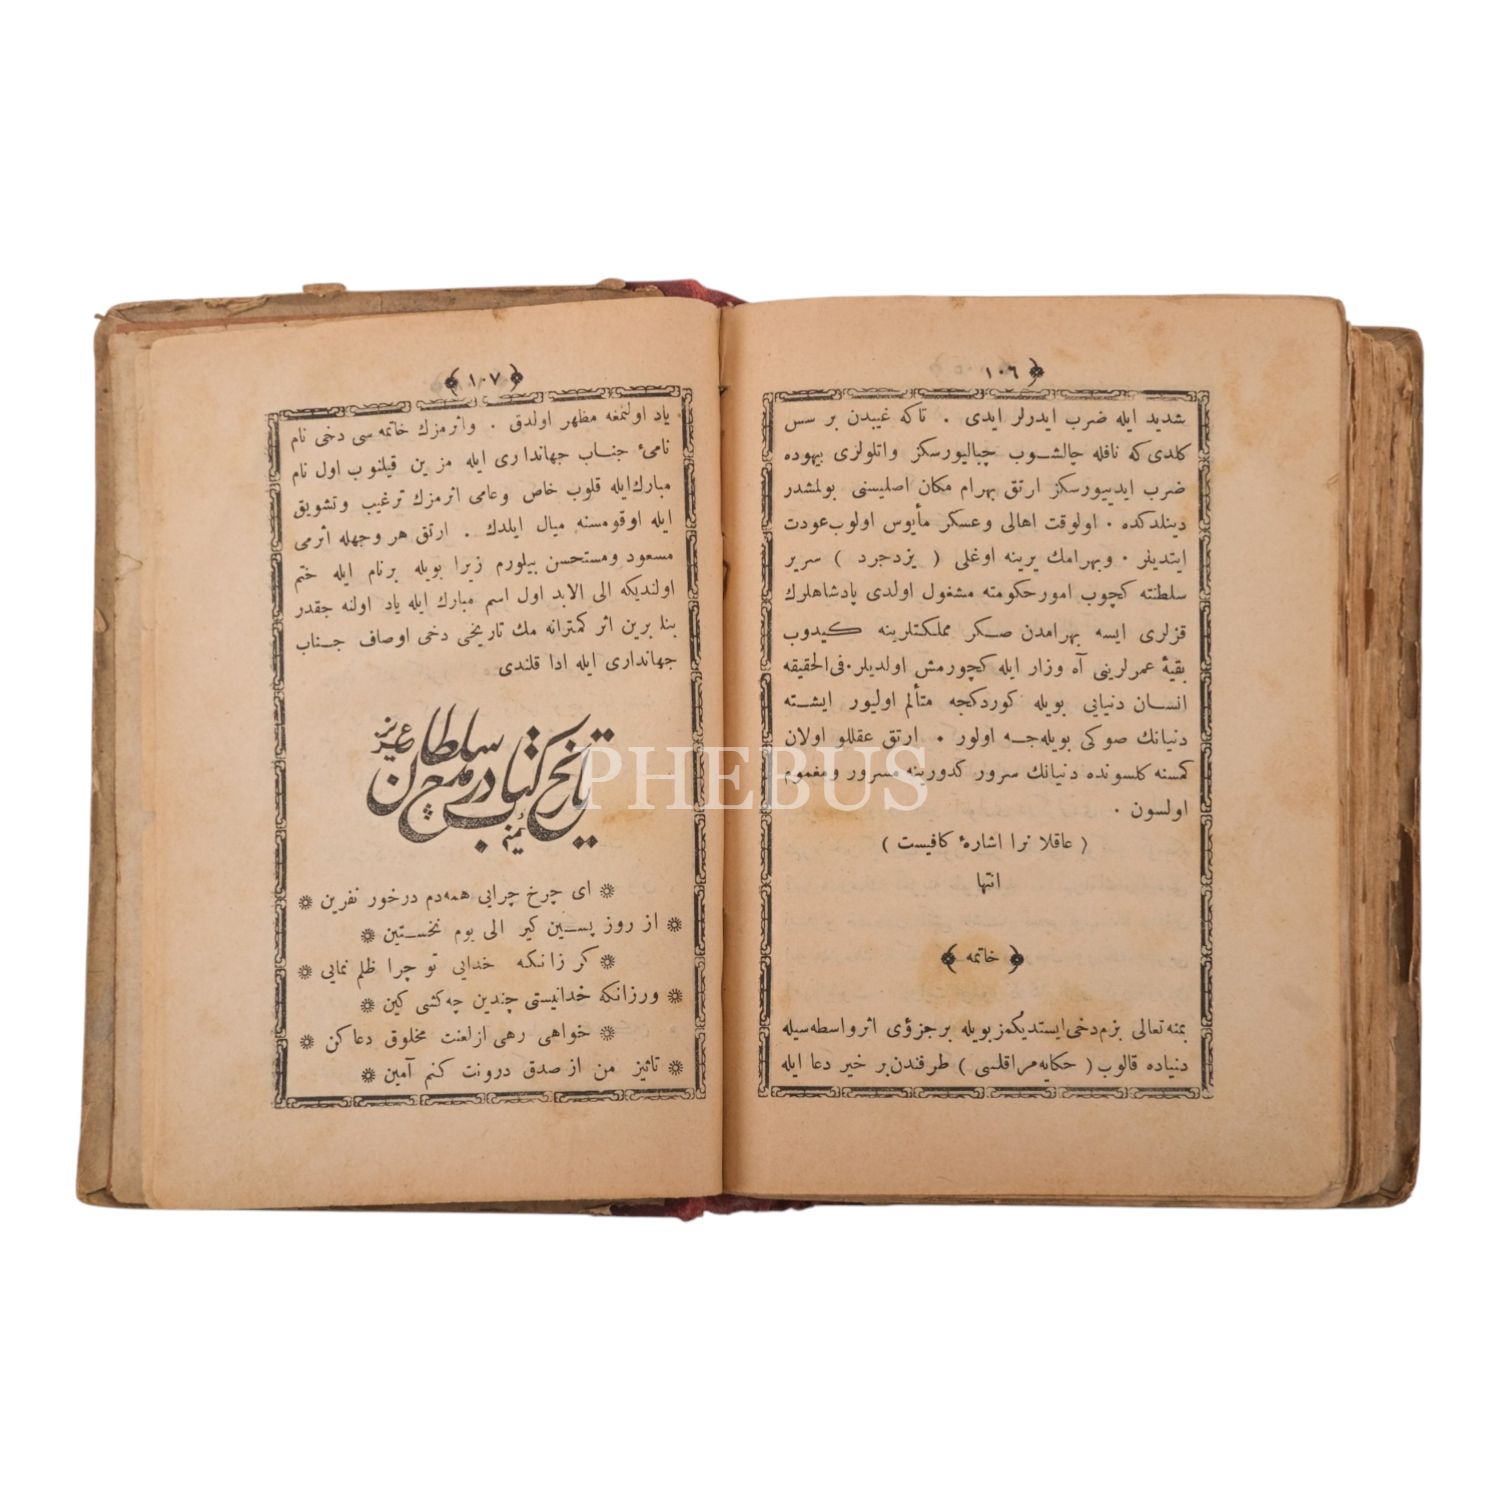 ﴿ ١٠٦
شديد ايله ضرب ايدرلر ايدى . تاكه غيبدن بر سس
كلدى كه نافله چالشوب چباليورسكز واتلولرى بيهوده
ضرب ايدييورسكز ارتق بهرام مكان اصليسنى بولمشدر
دينلدكده . اولوقت اهالى وعسكر مأيوس اولوب عودت
ايتديلر . وبهرامك يرينه اوغلى ( يزدجرد ) سرير
سلطنته كچوب امور حكومته مشغول اولدى پادشاهلرك
قزلرى ايسه بهرامدن صكر مملكتلرينه كيدوب
بقيۀ عمرلرينى آه وزار ايله كچورمش اولديلر. فى الحقيقه
انسان دنيايى بويله كوردكجه متألم اوليور ايشته
دنيانك صوكى بويله جه اولور . ارتق عقللو اولان
كمسنه كلسونده دنيانك سرور كدورينه مسرور ومغموم
اولسون .
( عاقلا نرا اشارۀ كافيست )
انتها
﴿ خاتمه ﴾
بمنه تعالى بزم دخى ايستديكمز بويله بر جزؤى اثر واسطه سيله
دنياده قالوب ( حكايه مراقلسى ) طرفندن بر خير دعا ايله
﴿ ١٠٧ ﴾
ياد اولنمغه مظهر اولدق . واثرمزك خاتمه سى دخى نام
نامئ جناب جهاندارى ايله مزين قيلنوب اول نام
مبارك ايله قلوب خاص وعامى اثرمزك ترغيب وتشويق
ايله اوقومسنه ميال ايلدك . ارتق هر وجهله اثرمى
مسعود ومستحسن بيلورم زيرا بويله برنام ايله ختم
اولنديكه الى الابد اول اسم مبارك ايله ياد اولنه جقدر
بناء برين اثر كمترانه مك تاريخى دخى اوصاف جناب
جهاندارى ايله ادا قلندى
تاريخ كتاب در مدح سلطان عزيز
❋ اى چرخ چرايى همه دم درخور نفرين ❋
❋ از روز پسين كير الى يوم نخستين ❋
❋ كر زانكه خدايى تو چرا ظلم نمايى ❋
❋ ورزانكه خدانيستى چندين چه كشى كين ❋
❋ خواهى رهى از لعنت مخلوق دعا كن ❋
❋ تاثيز من از صدق درونت كنم آمين ❋
PHEBUS